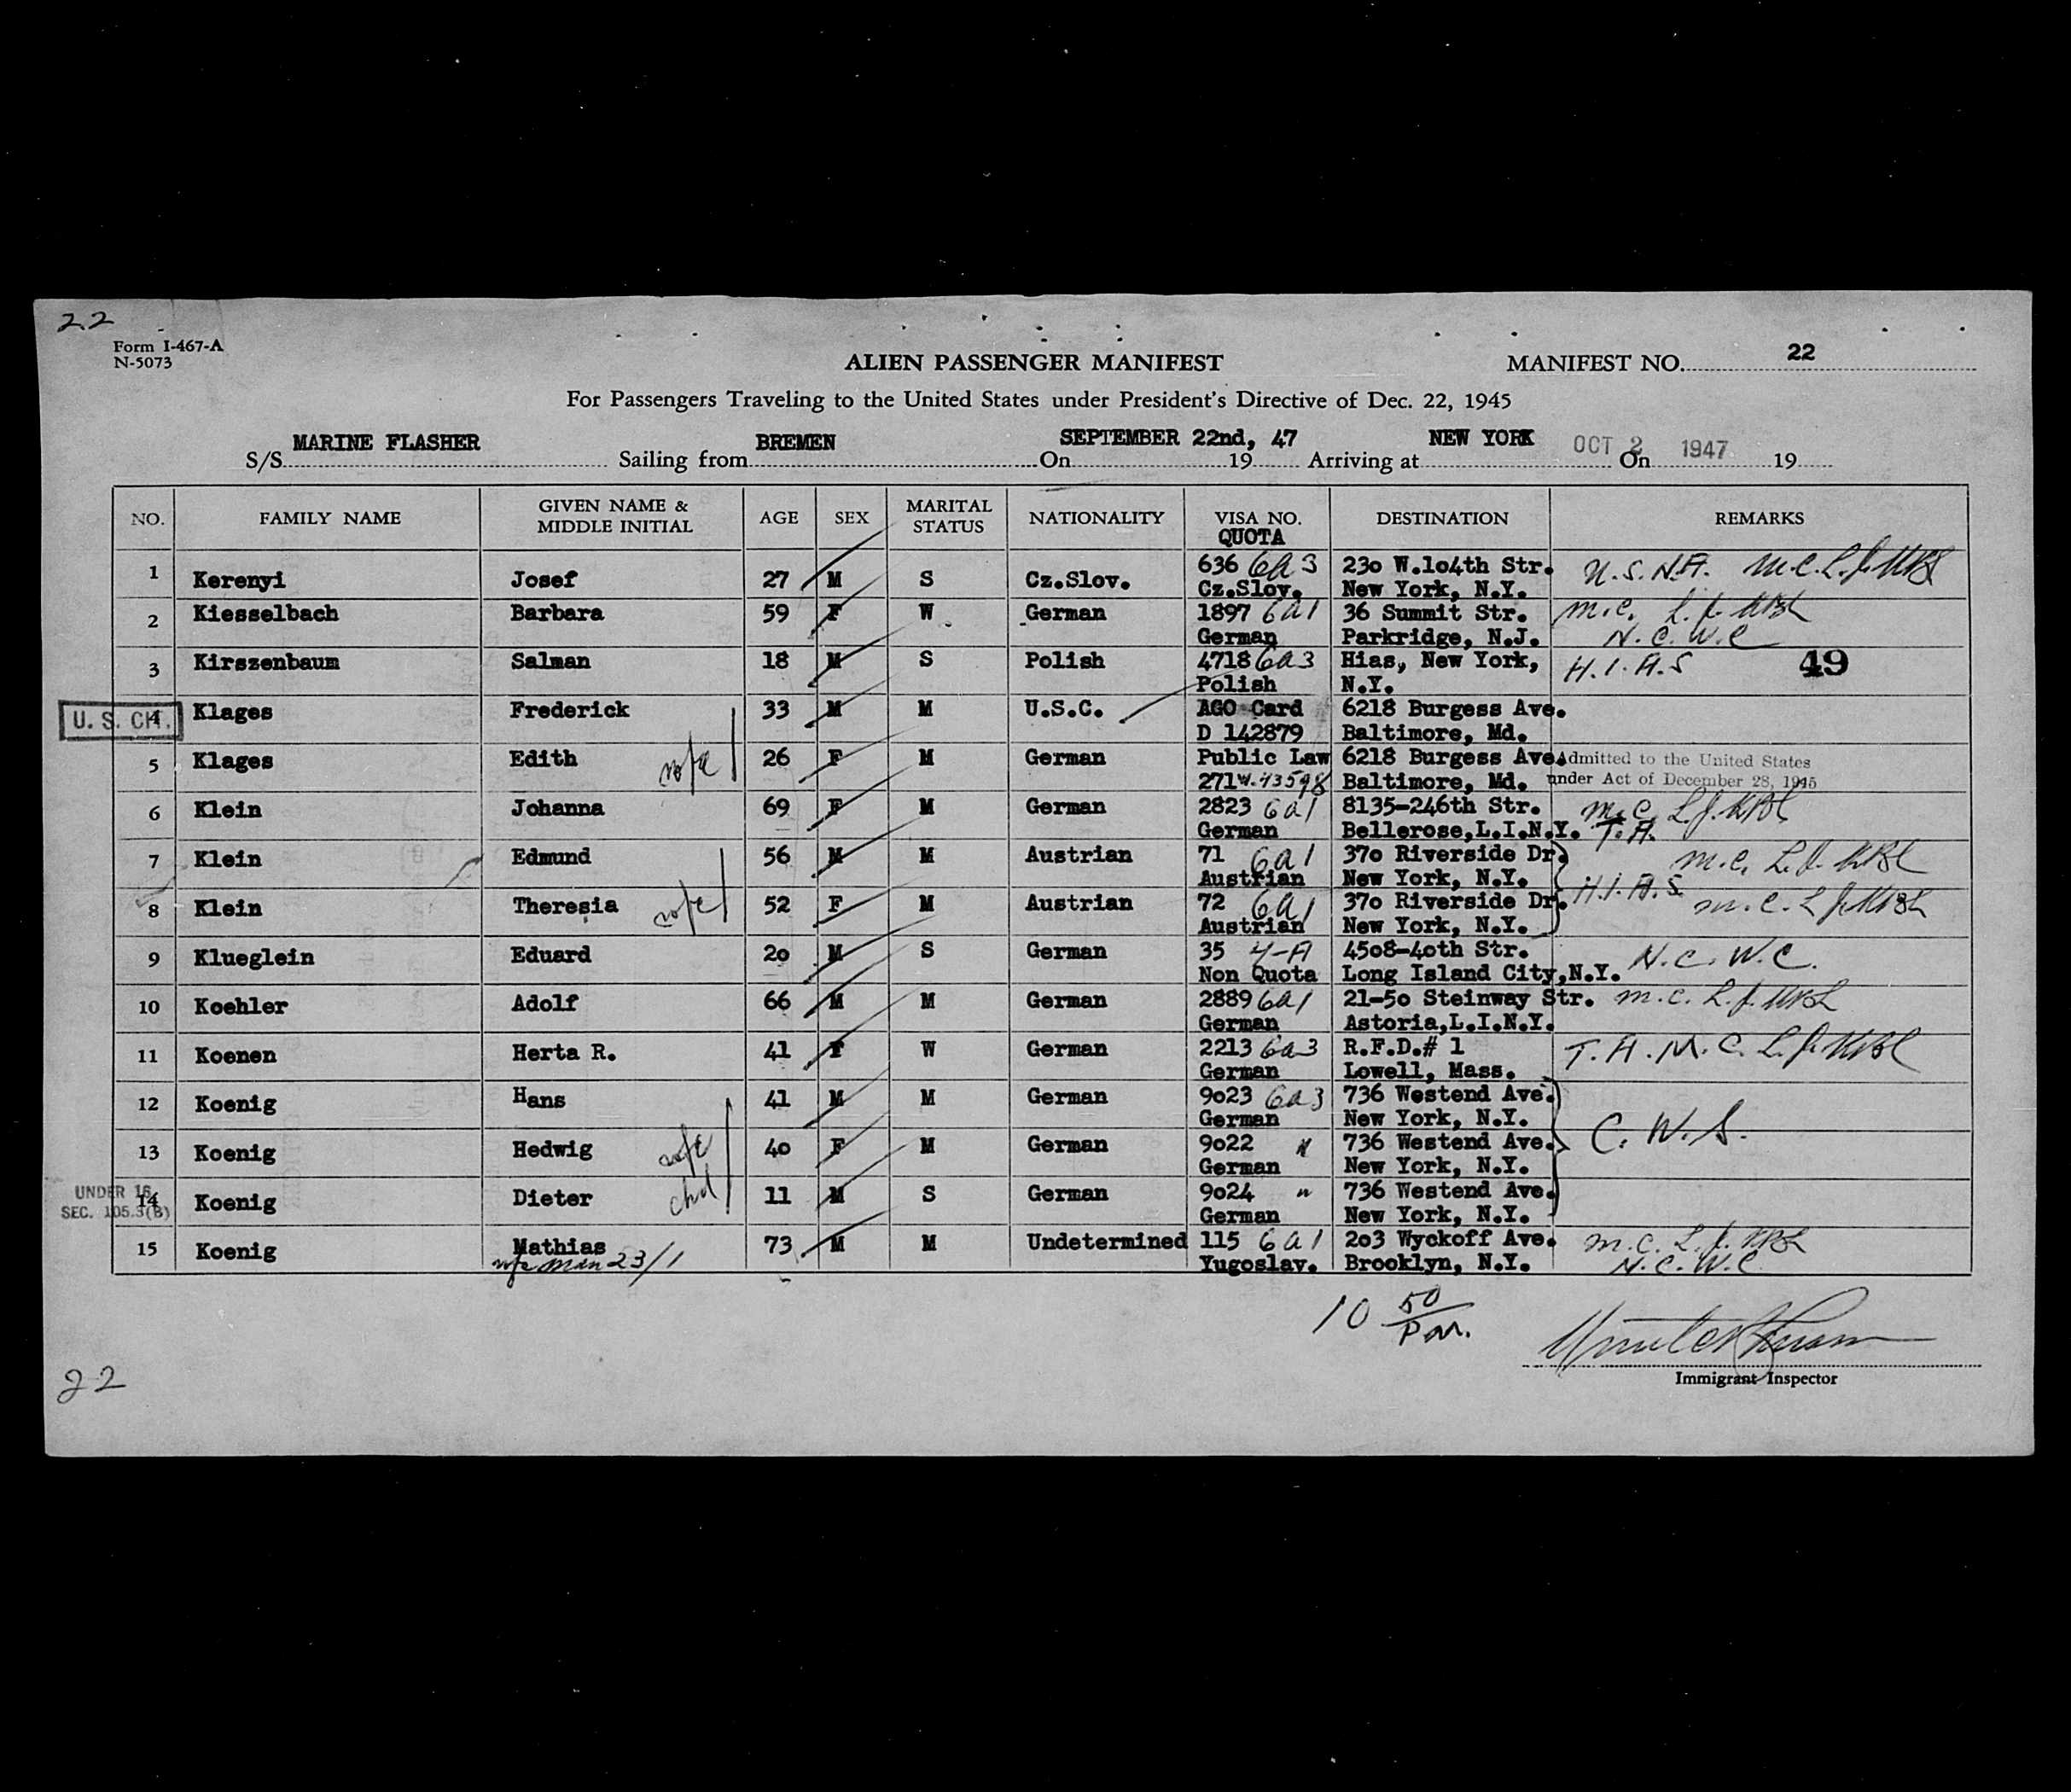 22
Form I-467-A
N-5073
ALIEN PASSENGER MANIFEST
MANIFEST NO. 22
For Passengers Traveling to the United States under President's Directive of Dec. 22, 1945
S/S MARINE FLASHER Sailing from BREMEN On SEPTEMBER 22nd, 19 47 Arriving at NEW YORK On OCT 2 1947 19
NO. FAMILY NAME GIVEN NAME & MIDDLE INITIAL AGE SEX MARITAL STATUS NATIONALITY VISA NO. QUOTA DESTINATION REMARKS
1 Kerenyi Josef 27 M S Cz.Slov. 636 6a3 230 W.1o4th Str. U.S.N.A. M.C.L.J.
Cz.Slov. New York, N.Y.
2 Kiesselbach Barbara 59 F W German 1897 6a1 36 Summit Str. M.C. L.J.
German Parkridge, N.J. N.C.W.C
3 Kirszenbaum Salman 18 M S Polish 4718 6a3 Hias, New York, H.I.A.S 49
Polish N.Y.
U.S. CIT.
4 Klages Frederick 33 M M U.S.C. AGO Card 6218 Burgess Ave.
D 142879 Baltimore, Md.
5 Klages Edith w/e 26 F M German Public Law 6218 Burgess Ave. Admitted to the United States
271 W.43598 Baltimore, Md. under Act of December 28, 1945
6 Klein Johanna 69 F M German 2823 6a1 8135-246th Str. M.C. L.J.
German Bellerose,L.I.N.Y. T.A.
7 Klein Edmund 56 M M Austrian 71 6a1 370 Riverside Dr. M.C. L.J.
Austrian New York, N.Y. H.I.A.S
8 Klein Theresia w/e 52 F M Austrian 72 6a1 370 Riverside Dr. M.C. L.J.
Austrian New York, N.Y.
9 Klueglein Eduard 2o M S German 35 4-A 45o8-4oth Str. N.C.W.C.
Non Quota Long Island City,N.Y.
10 Koehler Adolf 66 M M German 2889 6a1 21-5o Steinway Str. M.C. L.J.
German Astoria,L.I.N.Y.
11 Koenen Herta R. 41 F W German 2213 6a3 R.F.D.# 1 T.A. M.C. L.J.
German Lowell, Mass.
12 Koenig Hans 41 M M German 9o23 6a3 736 Westend Ave.
German New York, N.Y. C.W.S.
13 Koenig Hedwig w/e 4o F M German 9o22 " 736 Westend Ave.
German New York, N.Y.
UNDER 16
SEC. 105.3(B)
14 Koenig Dieter chd 11 M S German 9o24 " 736 Westend Ave.
German New York, N.Y.
15 Koenig Mathias 73 M M Undetermined 115 6a1 2o3 Wyckoff Ave. M.C. L.J.
w/e man 23/1 Yugoslav. Brooklyn, N.Y. N.C.W.C
10 50
Pm.
Immigrant Inspector
22